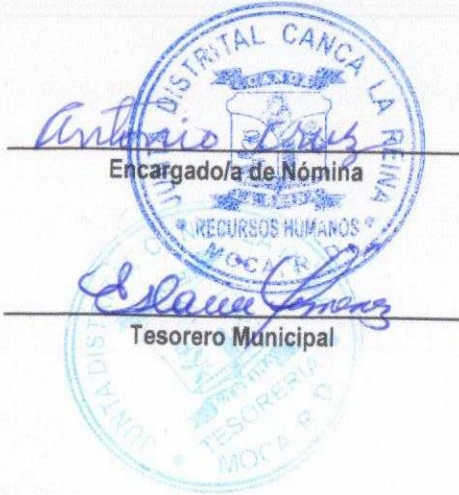 JUNTA DISTRITAL CANCA LA REINA
Antonio Cruz
Encargado/a de Nómina
RECURSOS HUMANOS
MOCA, R. D.
Jimenez
Tesorero Municipal
JUNTA DIST
TESORERIA
MOCA, R. D.